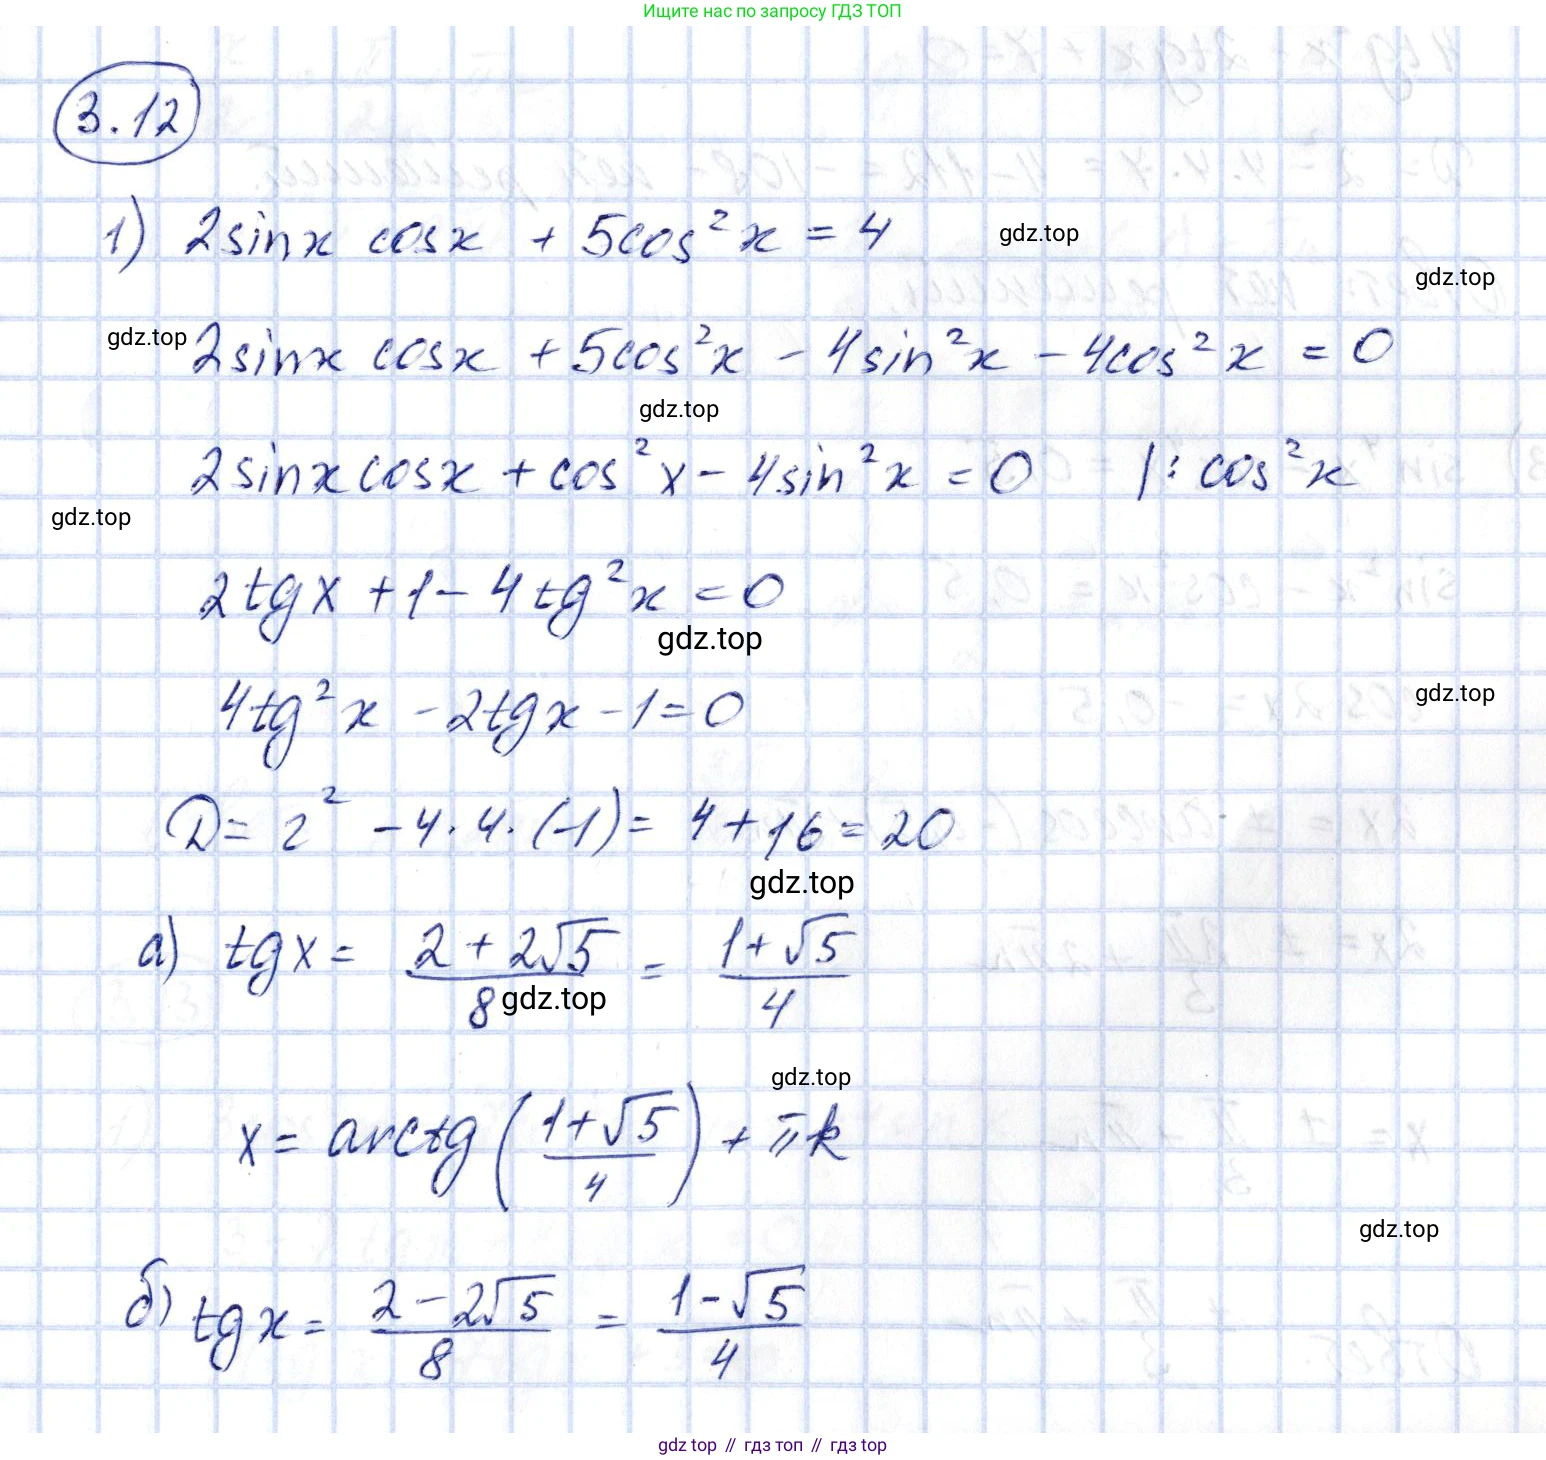 Ищите нас по запросу ГДЗ ТОП
3.12
1) 2sinx cosx + 5cos²x = 4
gdz.top
gdz.top
gdz.top
2sinx cosx + 5cos²x - 4sin²x - 4cos²x = 0
gdz.top
2sinx cosx + cos²x - 4sin²x = 0 |: cos²x
gdz.top
2tgx + 1 - 4tg²x = 0
gdz.top
4tg²x - 2tgx - 1 = 0
gdz.top
D = 2² - 4·4·(-1) = 4 + 16 = 20
gdz.top
а) tgx = (2 + 2√5)/8 = (1 + √5)/4
gdz.top
gdz.top
x = arctg((1 + √5)/4) + πk
gdz.top
б) tgx = (2 - 2√5)/8 = (1 - √5)/4
gdz top // гдз топ // gdz top